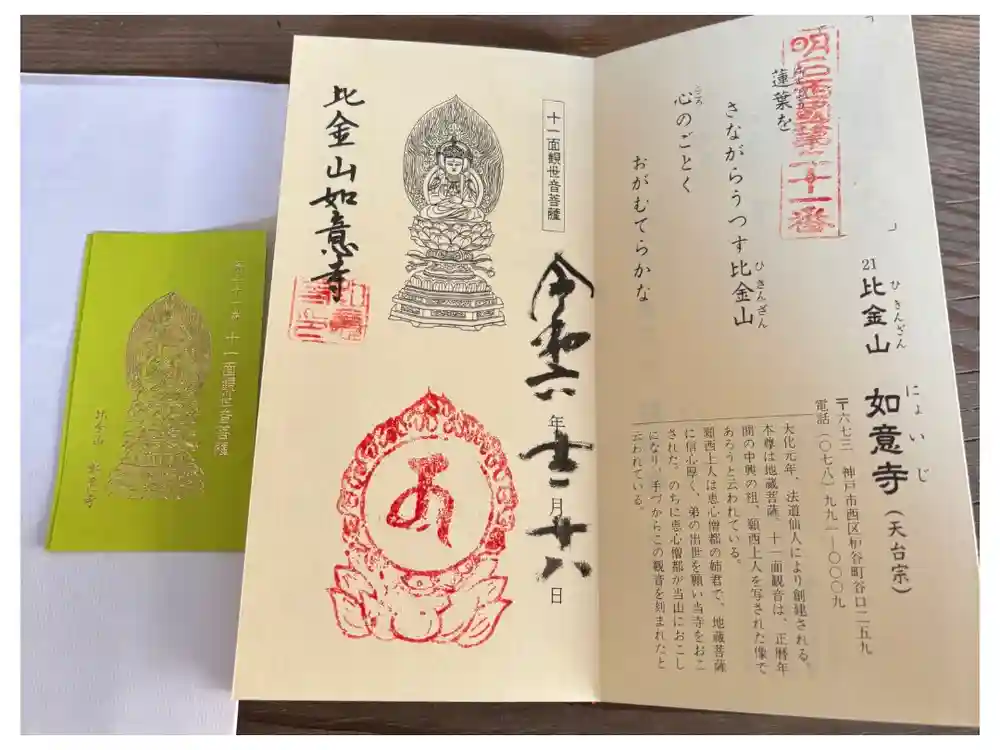 明石西国第二十一番
蓮葉を
さながらうつす比金山
ひきんざん
心のごとく
こころ
おがむてらかな
21 比金山 如意寺(天台宗)
ひきんざん にょいじ
〒六七三 神戸市西区櫨谷町谷口二五九
電話(〇七八)九九一―〇〇〇九
大化元年、法道仙人により創建される。
本尊は地蔵菩薩、十一面観音は、正暦年
間の中興の祖、願西上人を写された像で
あろうと云われている。
願西上人は恵心僧都の姉君で、地蔵菩薩
に信心厚く、弟の出世を願い当寺をおこ
された。のちに恵心僧都が当山におこし
になり、手づからこの観音を刻まれたと
云われている。
十一面観世音菩薩
令和六年十一月廿八日
比金山如意寺
十一面観世音菩薩
比金山 如意寺